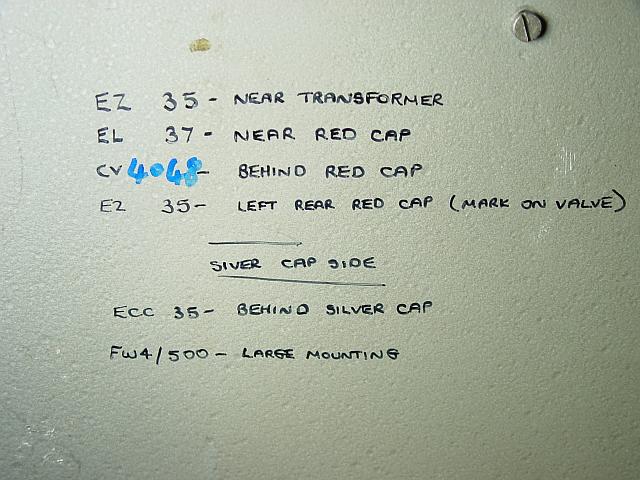 EZ 35- NEAR TRANSFORMER
EL 37- NEAR RED CAP
CV 4048- BEHIND RED CAP
EZ 35- LEFT REAR RED CAP (MARK ON VALVE)
SIVER CAP SIDE
ECC 35- BEHIND SILVER CAP
FW4/500- LARGE MOUNTING